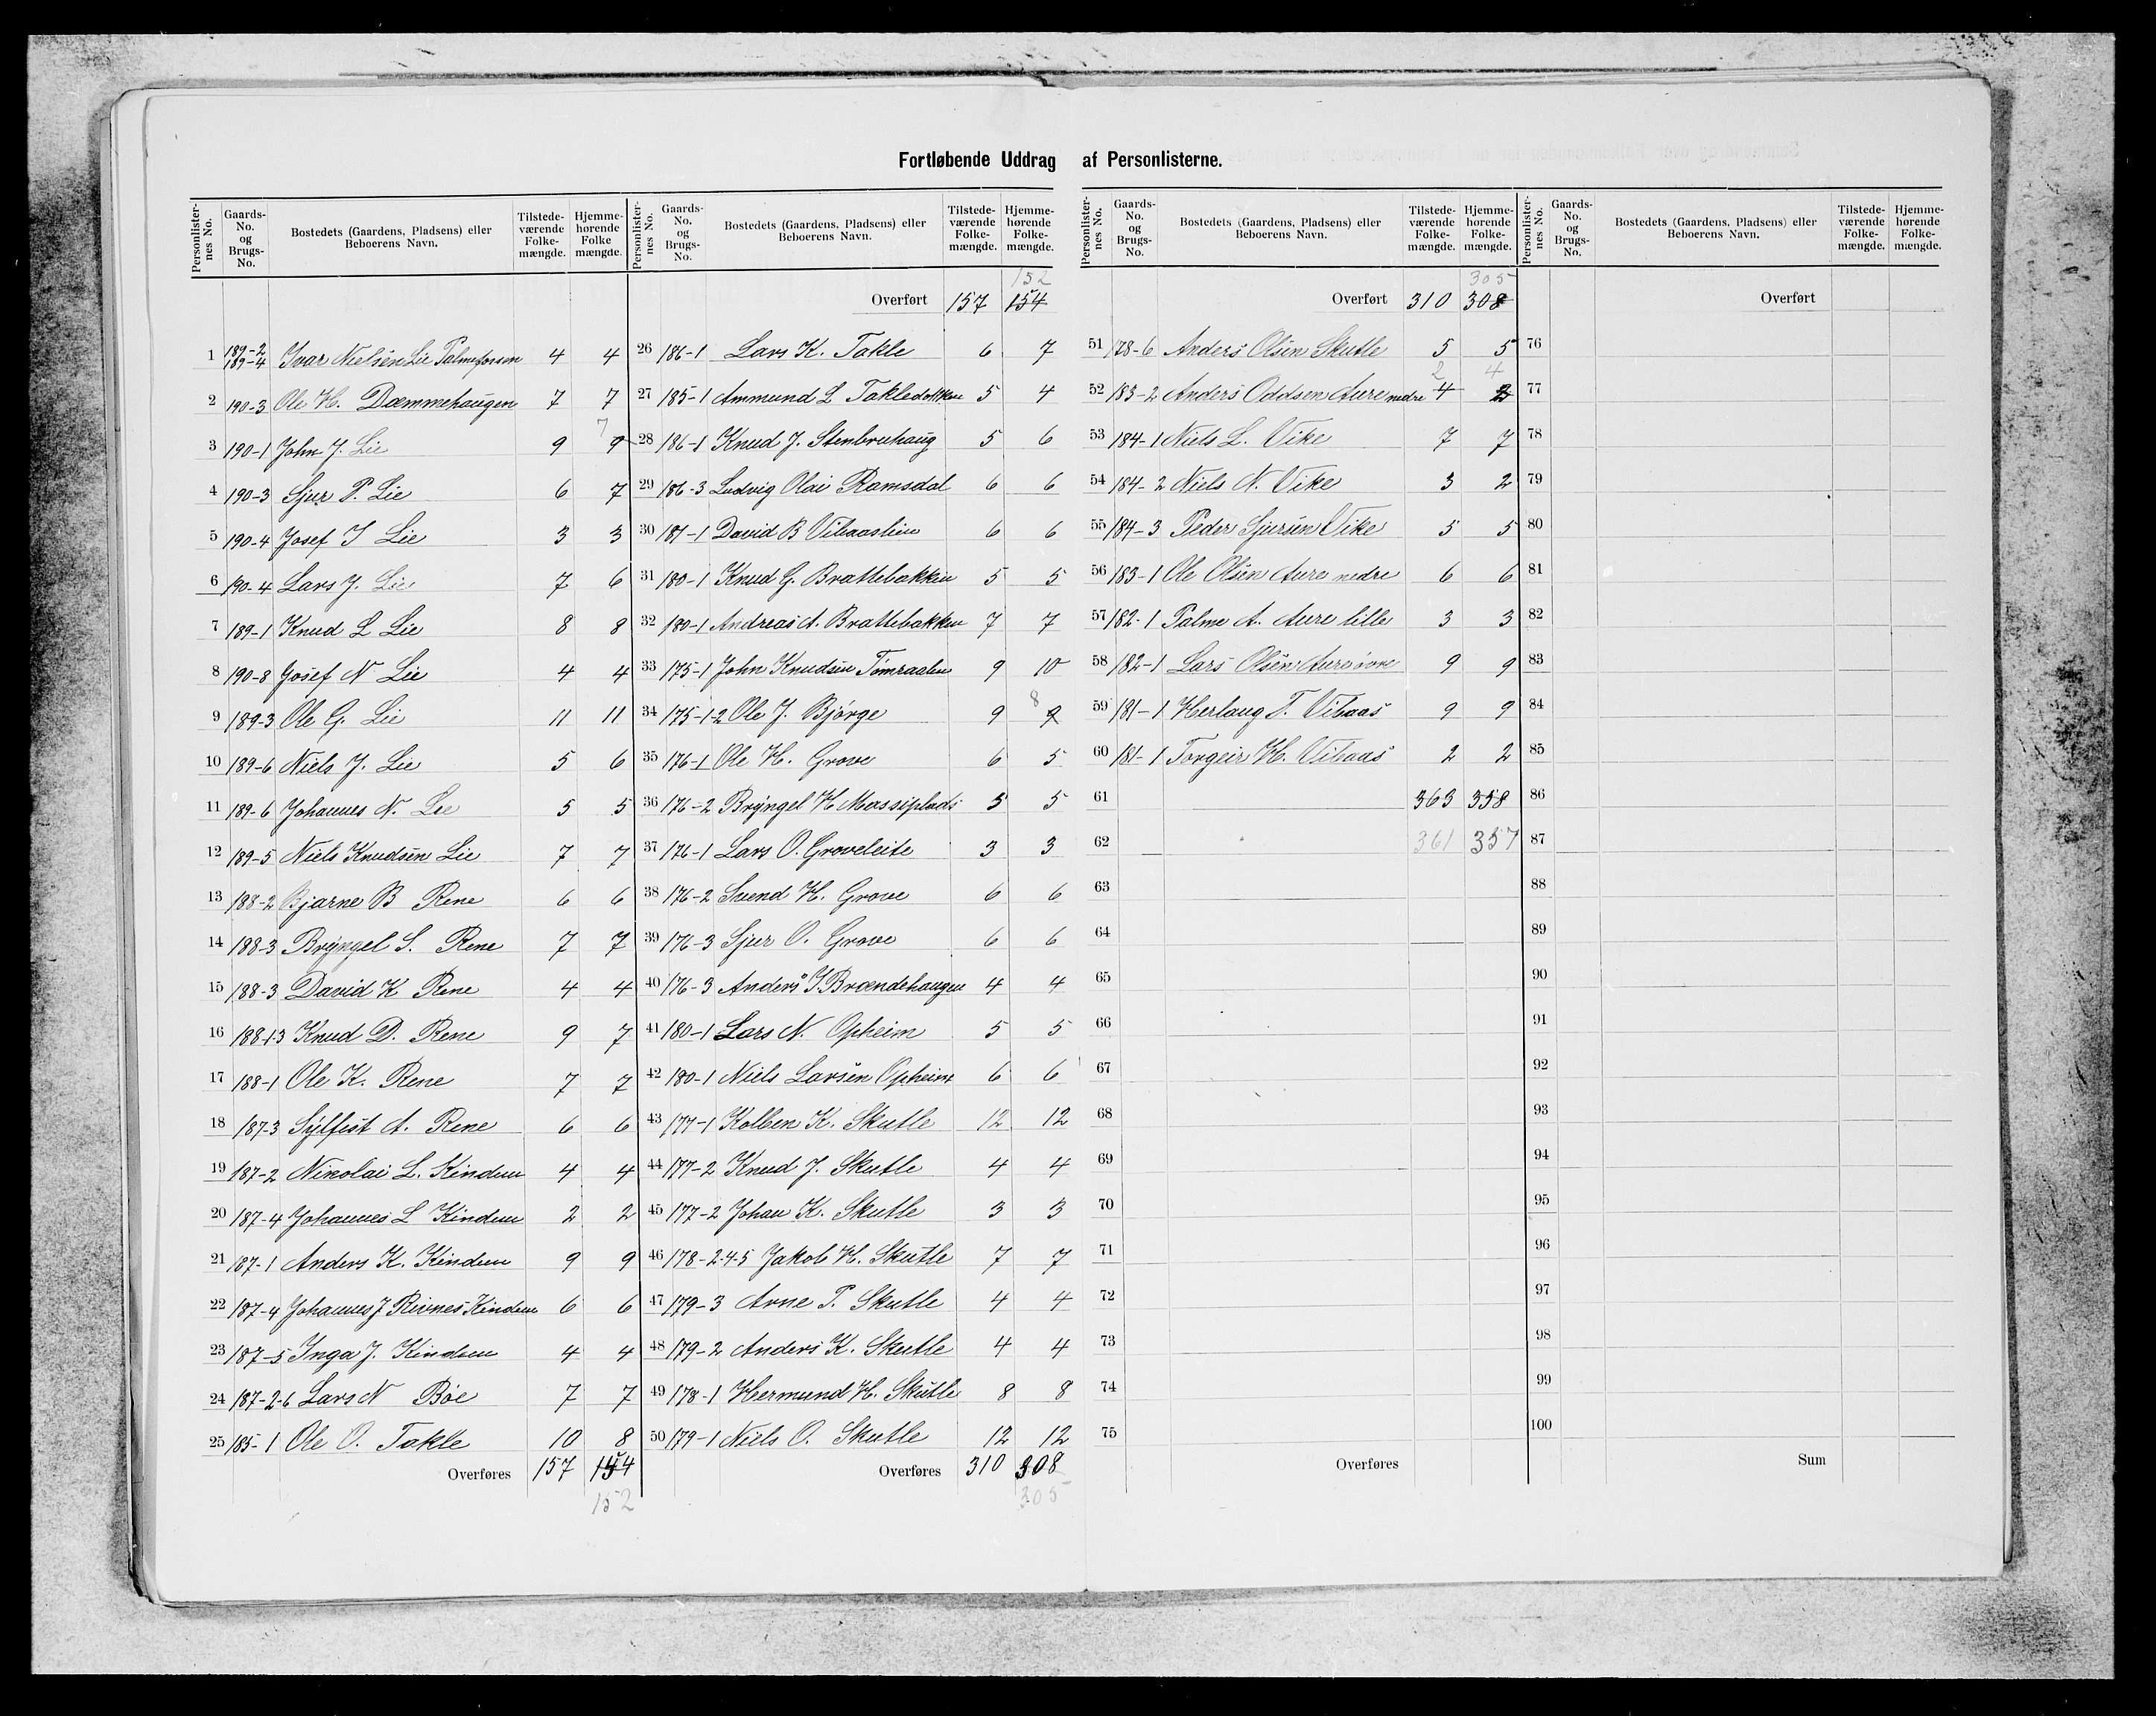 Fortløbende Uddrag af Personlisterne.
Personlister-nes No. Gaards-No. og Brugs-No. Bostedets (Gaardens, Pladsens) eller Beboerens Navn. Tilstede-værende Folke-mængde. Hjemme-hørende Folke mængde.
1 189-2 189-4 Ivar Nielsen Lie Palmefossen 4 4
2 190-3 Ole H. Dæmmehaugen 7 7
3 190-1 John J. Lie 9 9 7
4 190-3 Sjur P. Lie 6 7
5 190-4 Josef I Lie 3 3
6 190-4 Lars J. Lie 7 6
7 189-1 Knud L Lie 8 8
8 190-8 Josef N Lie 4 4
9 189-3 Ole G. Lie 11 11
10 189-6 Niels J. Lie 5 6
11 189-6 Johannes N. Lie 5 5
12 189-5 Niels Knudsen Lie 7 7
13 188-2 Bjarne B Rene 6 6
14 188-3 Bryngel S. Rene 7 7
15 188-3 David K Rene 4 4
16 188-1-3 Knud D. Rene 9 7
17 188-1 Ole K. Rene 7 7
18 187-3 Sylfest A. Rene 6 6
19 187-2 Nikolai L. Kindem 4 4
20 187-4 Johannes L Kindem 2 2
21 187-1 Anders K. Kindem 9 9
22 187-4 Johannes J Rivnes Kindem 6 6
23 187-5 Inga J. Kindem 4 4
24 187-2-6 Lars N Bøe 7 7
25 185-1 Ole O. Takle 10 8
Overføres 157 154
152
Personlister-nes No. Gaards-No. og Brugs-No. Bostedets (Gaardens, Pladsens) eller Beboerens Navn. Tilstede-værende Folke-mængde. Hjemme-hørende Folke-mængde.
152
Overført 157 154
26 186-1 Lars K. Takle 6 7
27 185-1 Ammund L Takledokken 5 4
28 186-1 Knud J. Stenbruhaug 5 6
29 186-3 Ludvig Olai Ramsdal 6 6
30 181-1 David B Vibaaslien 6 6
31 180-1 Knud G. Brattebakken 5 5
32 180-1 Andreas A. Brattebakken 7 7
33 175-1 John Knudsen Tømraalen 9 10
34 175-1-2 Ole J. Bjørge 9 9 8
35 176-1 Ole H. Grove 6 5
36 176-2 Bryngel H Massiplads 5 5
37 176-1 Lars O. Groveleite 3 3
38 176-2 Svend H. Grove 6 6
39 176-3 Sjur O. Grove 6 6
40 176-3 Anders I Brændehaugen 4 4
41 180-1 Lars N. Opheim 5 5
42 180-1 Niels Larsen Opheim 6 6
43 177-1 Kolben K. Skutle 12 12
44 177-2 Knud J. Skutle 4 4
45 177-2 Johan K. Skutle 3 3
46 178-2-4-5 Jakob H. Skutle 7 7
47 179-3 Arne P. Skutle 4 4
48 179-2 Anders K. Skutle 4 4
49 178-1 Hermund H. Skutle 8 8
50 179-1 Niels O. Skutle 12 12
Overføres 310 308
305
Personlister-nes No. Gaards-No. og Brugs-No. Bostedets (Gaardens, Pladsens) eller Beboerens Navn. Tilstede-værende Folke-mængde. Hjemme-hørende Folke-mængde.
305
Overført 310 308
51 178-6 Anders Olsen Skutle 5 5
2 4
52 183-2 Anders Oddsen Aure nedre 4 2
53 184-1 Niels L. Vike 7 7
54 184-2 Niels N. Vike 3 2
55 184-3 Peder Sjursen Vike 5 5
56 183-1 Ole Olsen Aure nedre 6 6
57 182-1 Palme A. Aure lille 3 3
58 182-1 Lars Olsen Aure øvre 9 9
59 181-1 Herlaug T. Vibaas 9 9
60 181-1 Torgeir H. Vibaas 2 2
61 363 358
62 361 357
63
64
65
66
67
68
69
70
71
72
73
74
75
Overføres
Personlister-nes No. Gaards-No. og Brugs-No. Bostedets (Gaardens, Pladsens) eller Beboerens Navn. Tilstede-værende Folke-mængde. Hjemme-hørende Folke-mængde.
Overført
76
77
78
79
80
81
82
83
84
85
86
87
88
89
90
91
92
93
94
95
96
97
98
99
100
Sum